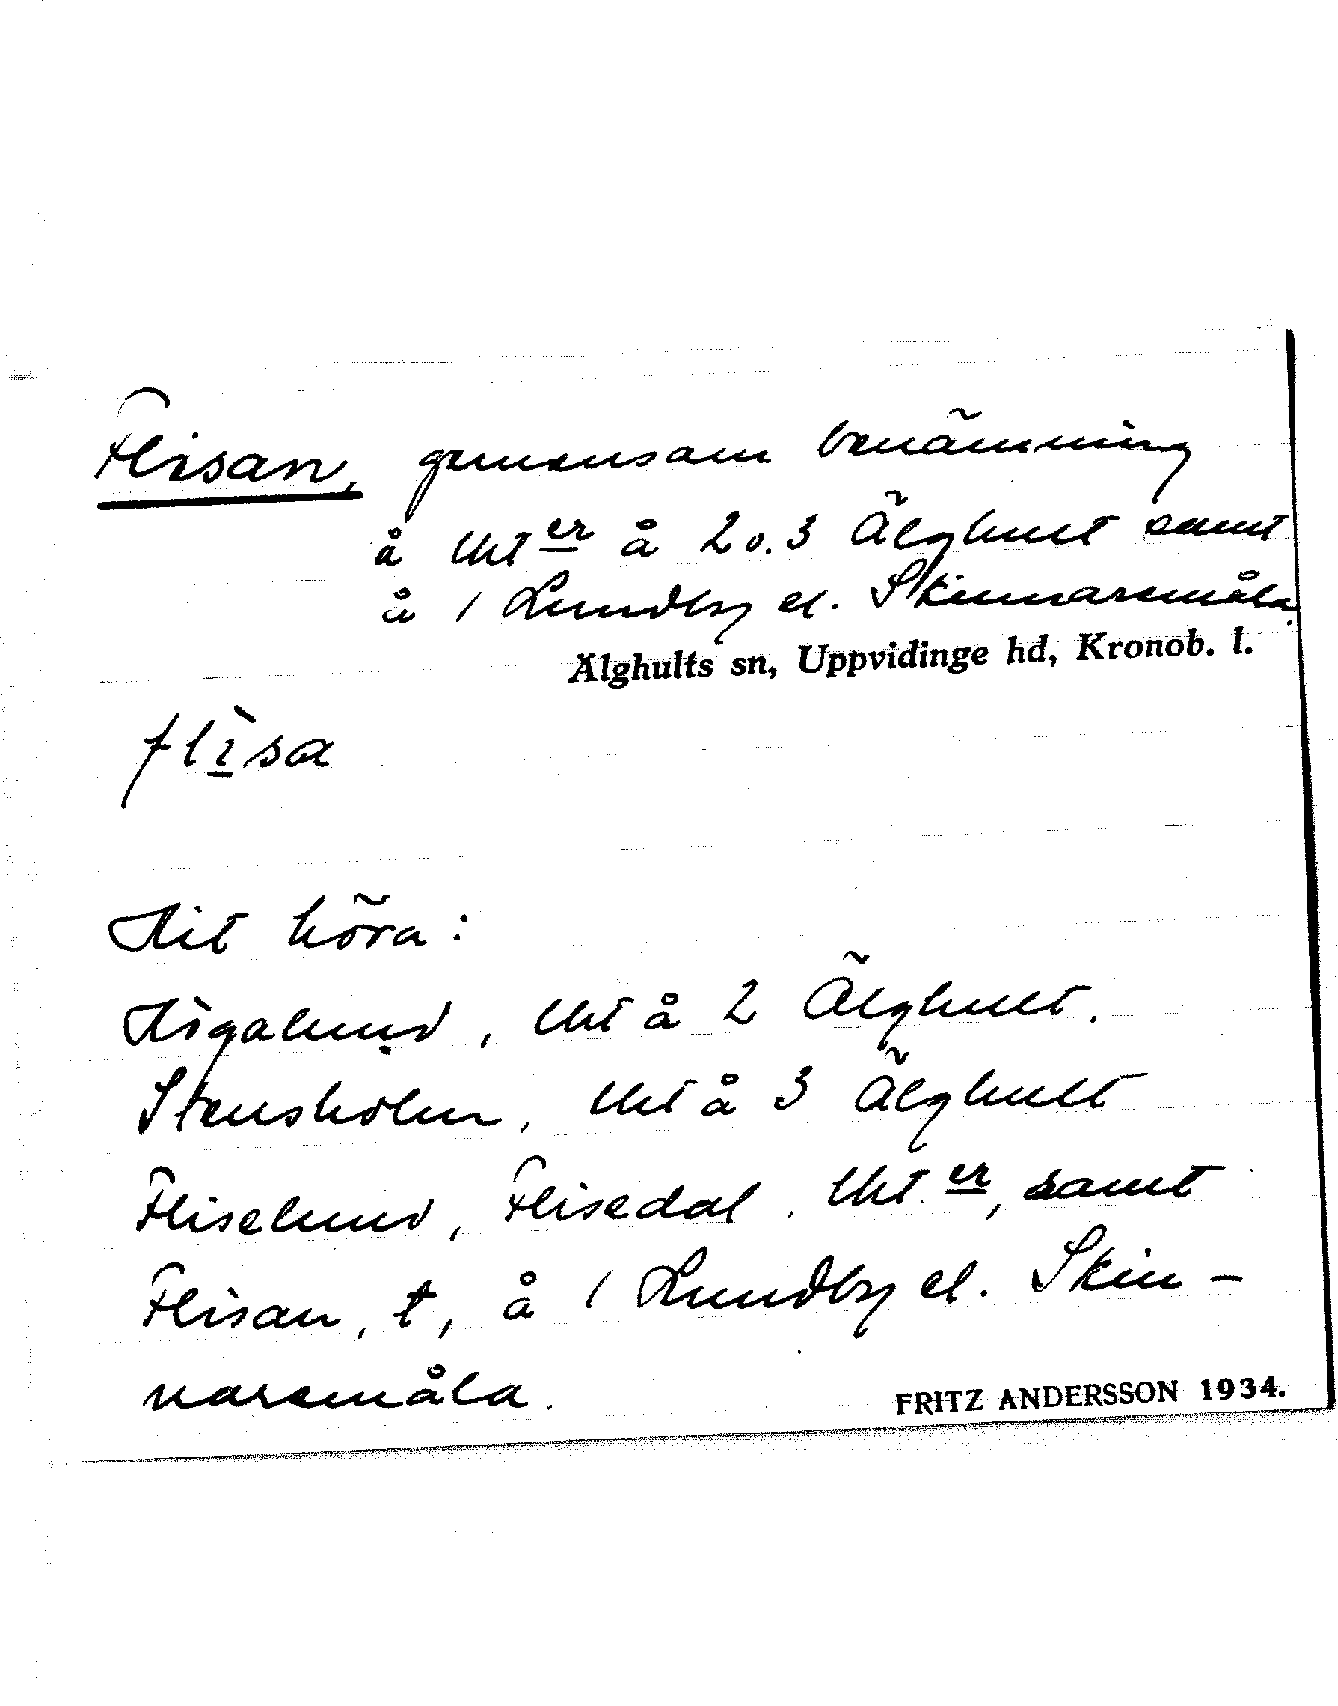 Flisan, gemensam benämning
å lht er å 2 o. 3 Älghult samt
å 1 Lundby el. Skinnarsmåla
Älghults sn, Uppvidinge hd, Kronob. l.
flìsa
Hit höra:
Högalund, lht å 2 Älghult.
Stensholm, lht å 3 Älghult
Fliselund, Flisedal, lht er, samt
Flisan, t, å 1 Lundby el. Skin-
narsmåla.
FRITZ ANDERSSON 1934.